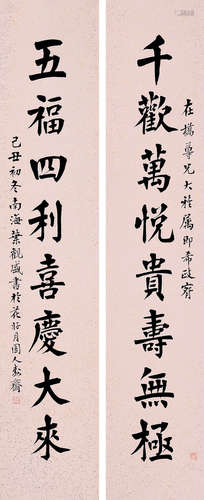 在橋尊兄大雅属即希政寳
千歡萬悦貴壽無極
五福四利喜慶大來
己丑初冬南海葉觀盛書於花好月圓人壽齋